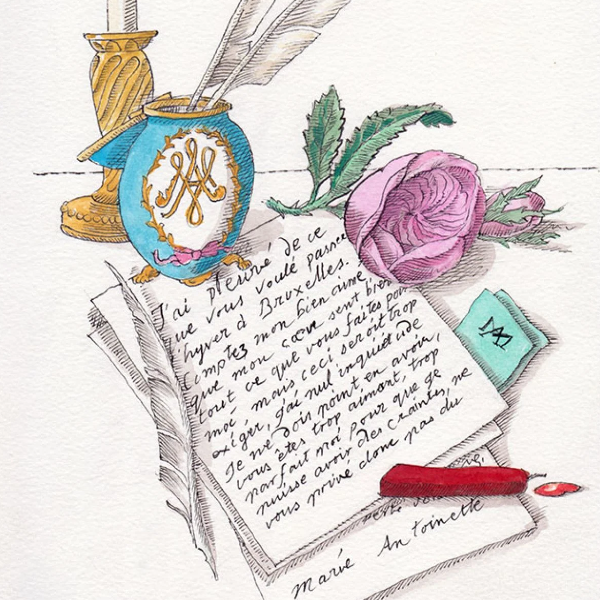 J'ai plesiré de ce
que vous voulé passer
l'hyver à Bruxelles.
Comptez mon bien aimé
que mon cœur sent bien
tout ce que vous faites pour
moé, mais ceci seroit trop
exiger, j'ai nul inquiétude
Je ne dois point en avoir,
vous êtes trop aimant, trop
parfait moi pour que je
puisse avoir des craintes, ne
vous prive donc pas du
perte
Marié Antoinette
MA
MA